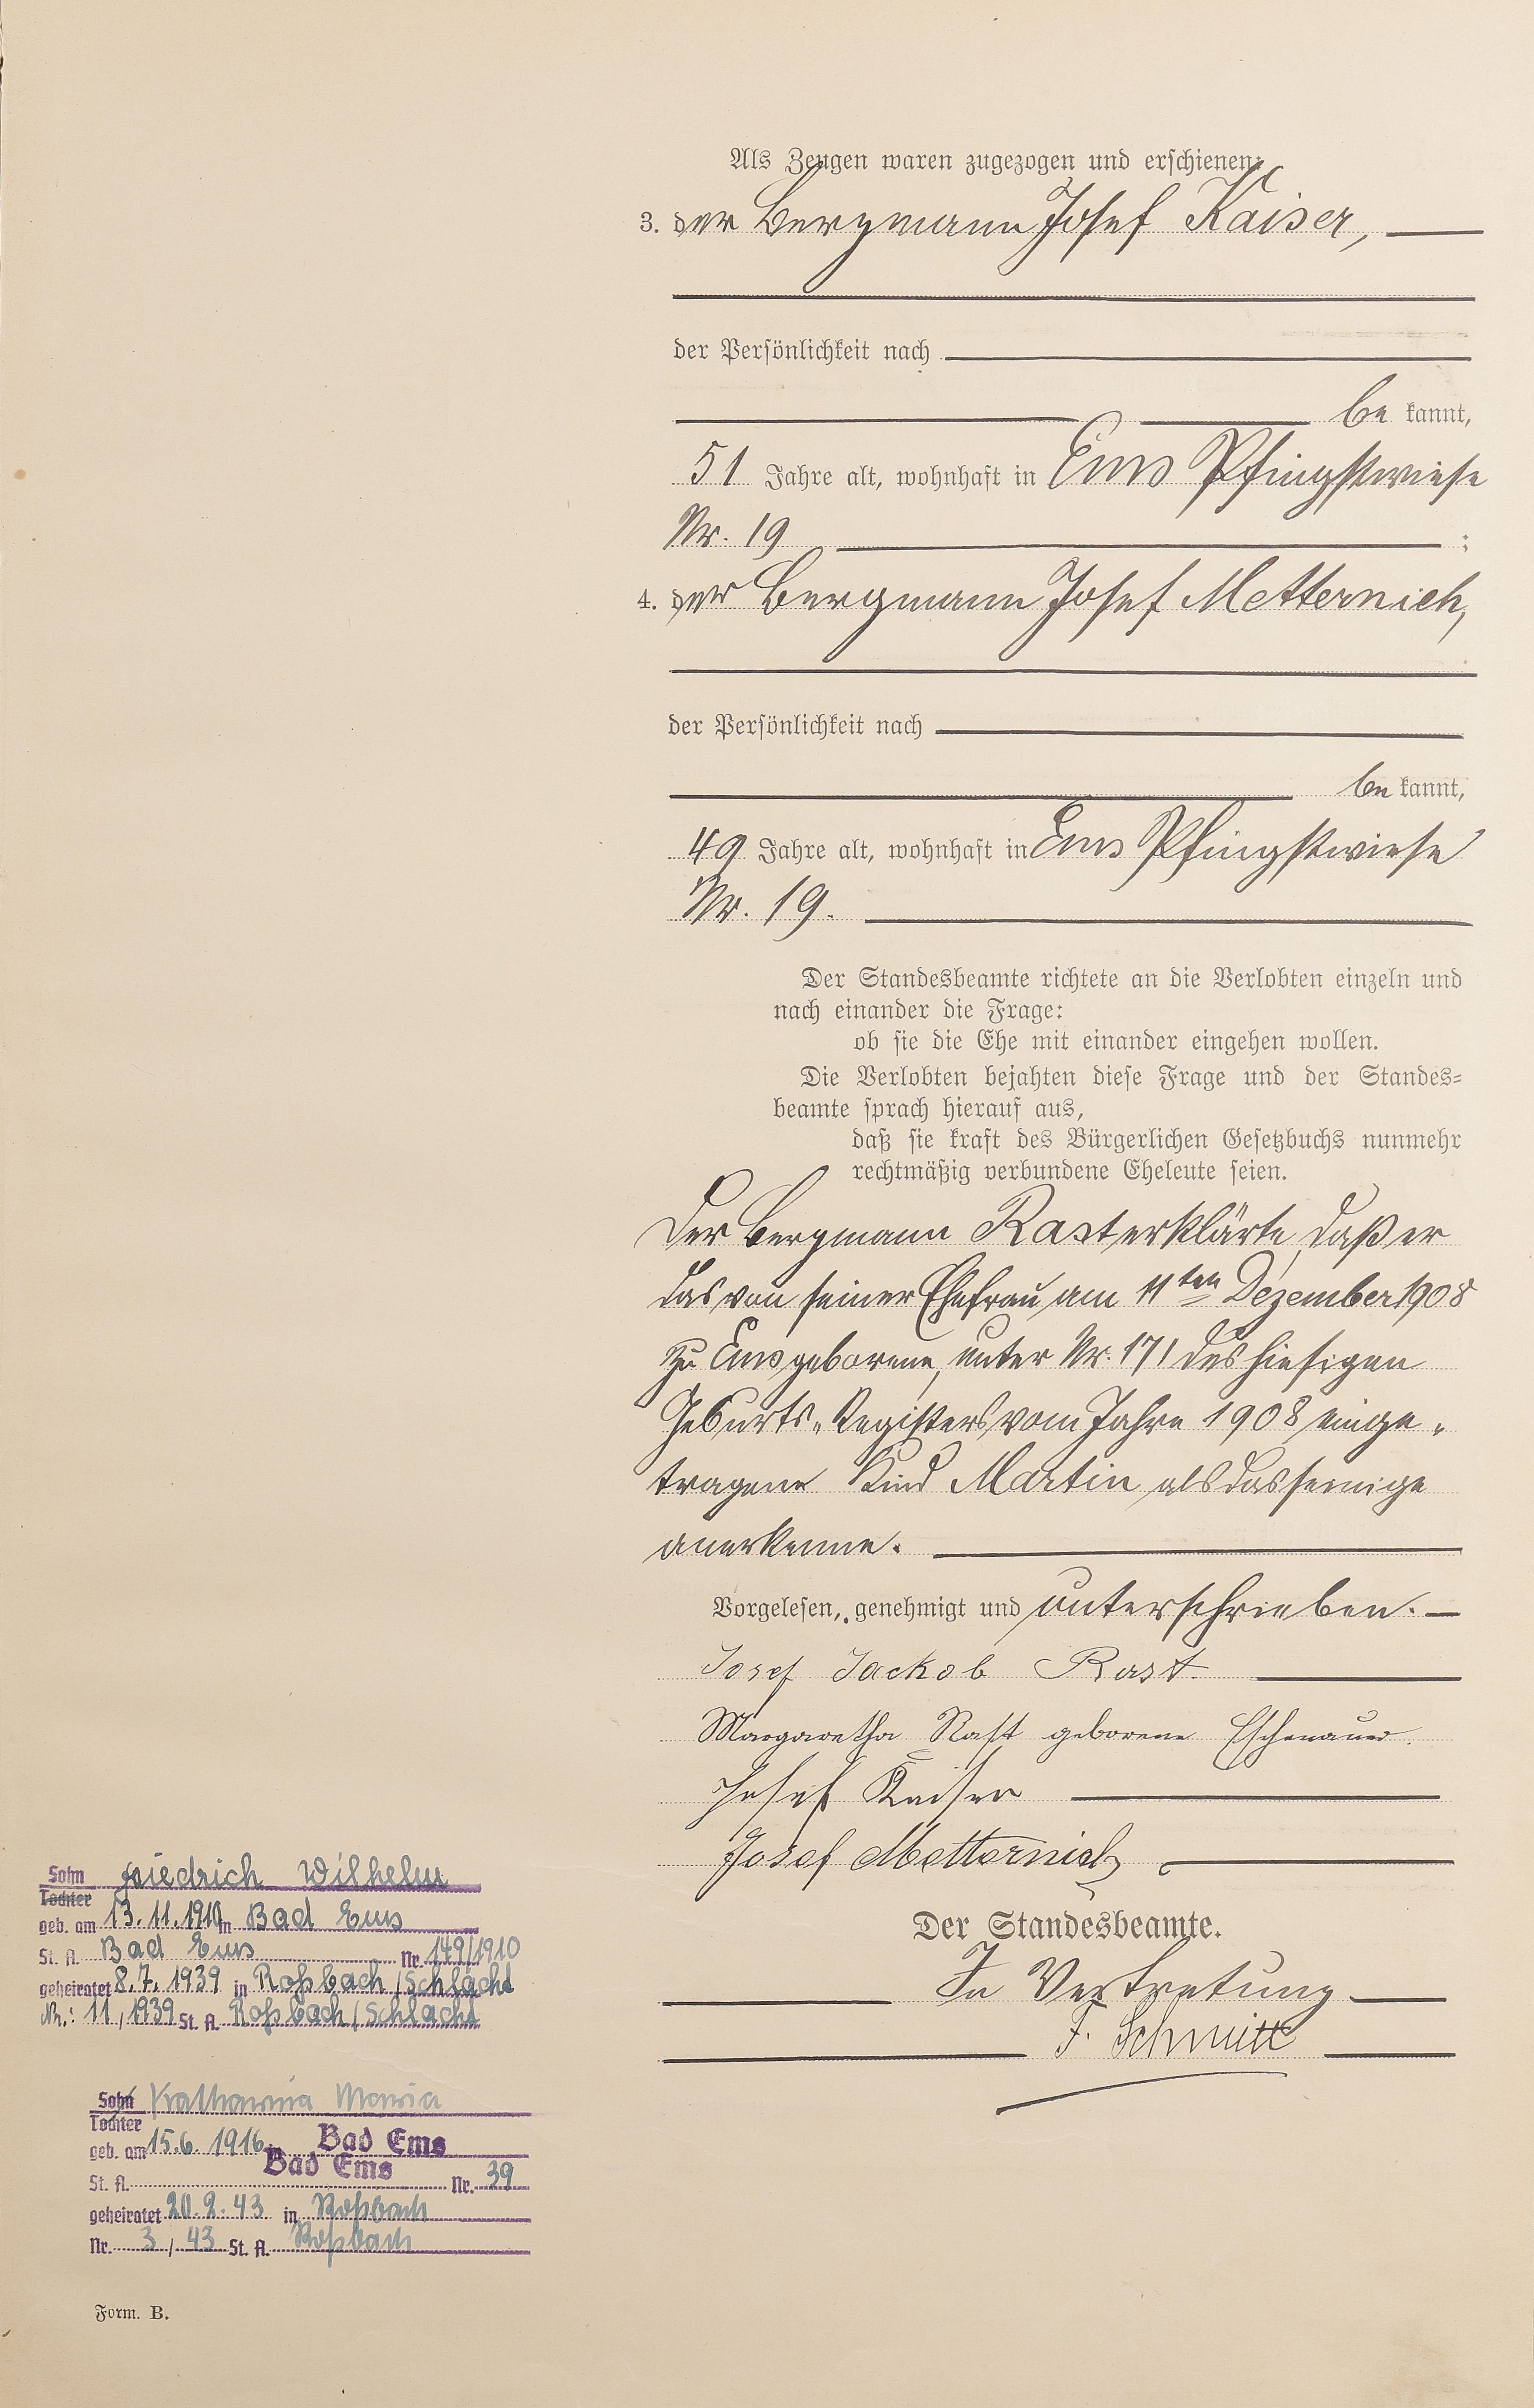 Als Zeugen waren zugezogen und erschienen:
3. der Bergmann Josef Kaiser,
der Persönlichkeit nach
be kannt,
51 Jahre alt, wohnhaft in Ems Pfingstwiese
Nr. 19 ;
4. der Bergmann Josef Metternich,
der Persönlichkeit nach
be kannt,
49 Jahre alt, wohnhaft in Ems Pfingstwiese
Nr. 19.
Der Standesbeamte richtete an die Verlobten einzeln und
nach einander die Frage:
ob sie die Ehe mit einander eingehen wollen.
Die Verlobten bejahten diese Frage und der Standes-
beamte sprach hierauf aus,
daß sie kraft des Bürgerlichen Gesetzbuchs nunmehr
rechtmäßig verbundene Eheleute seien.
Der Bergmann Rast erklärte, daß er
das von seiner Ehefrau am 11ten Dezember 1908
zu Ems geborene, unter Nr. 171 des hiesigen
Geburts-Registers vom Jahre 1908 einge-
tragene Kind Martin als das seinige
anerkenne.
Vorgelesen, genehmigt und unterschrieben.
Josef Jackob Rast.
Margaretha Rast geborene Eschenauer.
Josef Kaiser
Josef Metternich
Der Standesbeamte.
In Vertretung
F. Schmitt
Sohn Friedrich Wilhelm
Tochter
geb. am 13.11.1910 in Bad Ems
St. A. Bad Ems Nr. 149/1910
geheiratet 8.7.1939 in Roßbach/Schlacht
Nr.: 11/1939 St. A. Roßbach/Schlacht
Sohn Katharina Maria
Tochter
geb. am 15.6.1916 in Bad Ems
St. A. Bad Ems Nr. 39
geheiratet 20.2.43 in Roßbach
Nr. 3/43 St. A. Roßbach
Form. B.